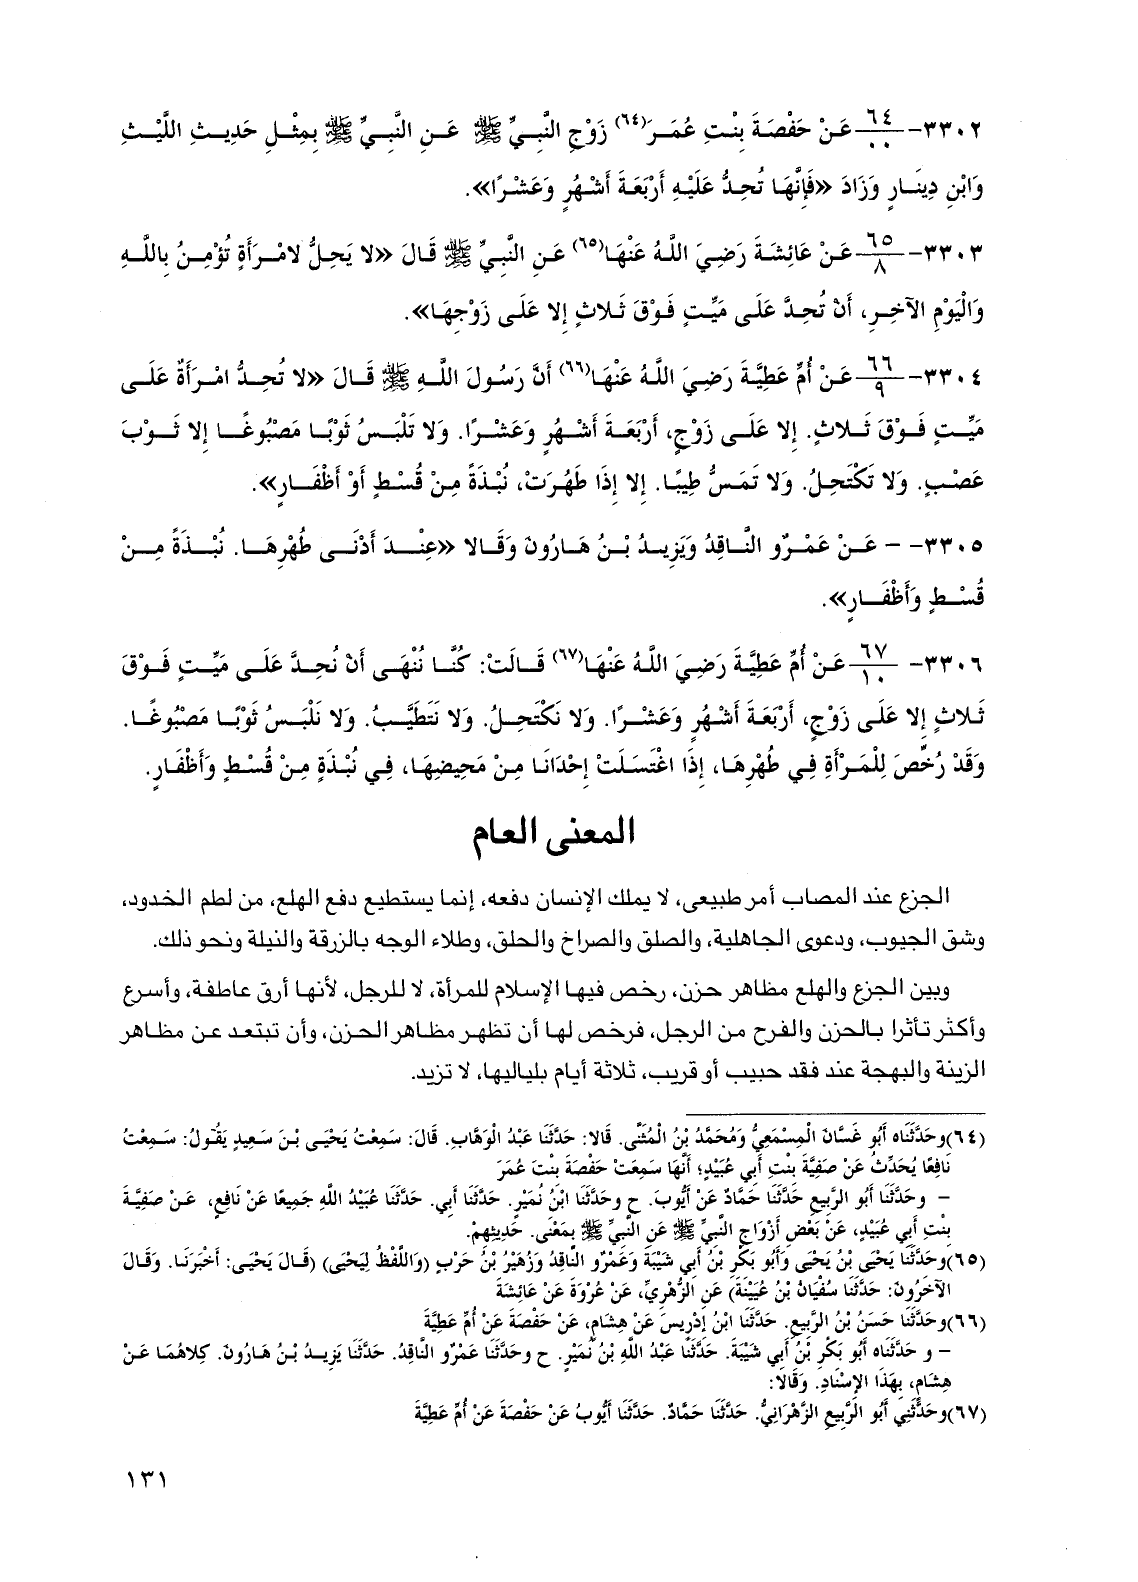 ٣٣٠٢- ٦٤/٠٠ عَنْ حَفْصَةَ بِنْتِ عُمَرَ(٦٤) زَوْجِ النَّبِيِّ ﷺ عَنِ النَّبِيِّ ﷺ بِمِثْلِ حَدِيثِ اللَّيْثِ
وَابْنِ دِينَارٍ وَزَادَ «فَإِنَّهَا تُحِدُّ عَلَيْهِ أَرْبَعَةَ أَشْهُرٍ وَعَشْرًا».
٣٣٠٣- ٦٥/٨ عَنْ عَائِشَةَ رَضِيَ اللَّهُ عَنْهَا(٦٥) عَنِ النَّبِيِّ ﷺ قَالَ «لا يَحِلُّ لامْرَأَةٍ تُؤْمِنُ بِاللَّهِ
وَالْيَوْمِ الآخِرِ، أَنْ تُحِدَّ عَلَى مَيِّتٍ فَوْقَ ثَلاثٍ إِلا عَلَى زَوْجِهَا».
٣٣٠٤- ٦٦/٩ عَنْ أُمِّ عَطِيَّةَ رَضِيَ اللَّهُ عَنْهَا(٦٦) أَنَّ رَسُولَ اللَّهِ ﷺ قَالَ «لا تُحِدُّ امْرَأَةٌ عَلَى
مَيِّتٍ فَوْقَ ثَلاثٍ. إِلا عَلَى زَوْجٍ، أَرْبَعَةَ أَشْهُرٍ وَعَشْرًا. وَلا تَلْبَسُ ثَوْبًا مَصْبُوغًا إِلا ثَوْبَ
عَصْبٍ. وَلا تَكْتَحِلُ. وَلا تَمَسُّ طِيبًا. إِلا إِذَا طَهُرَتْ، نُبْذَةً مِنْ قُسْطٍ أَوْ أَظْفَارٍ».
٣٣٠٥- – عَنْ عَمْرٌو النَّاقِدُ وَيَزِيدُ بْنُ هَارُونَ وَقَالا «عِنْدَ أَدْنَى طُهْرِهَا. نُبْذَةً مِنْ
قُسْطٍ وَأَظْفَارٍ».
٣٣٠٦- ٦٧/١٠ عَنْ أُمِّ عَطِيَّةَ رَضِيَ اللَّهُ عَنْهَا(٦٧) قَالَتْ: كُنَّا نُنْهَى أَنْ نُحِدَّ عَلَى مَيِّتٍ فَوْقَ
ثَلاثٍ إِلا عَلَى زَوْجٍ، أَرْبَعَةَ أَشْهُرٍ وَعَشْرًا. وَلا نَكْتَحِلُ. وَلا نَتَطَيَّبُ. وَلا نَلْبَسُ ثَوْبًا مَصْبُوغًا.
وَقَدْ رُخِّصَ لِلْمَرْأَةِ فِي طُهْرِهَا، إِذَا اغْتَسَلَتْ إِحْدَانَا مِنْ مَحِيضِهَا، فِي نُبْذَةٍ مِنْ قُسْطٍ وَأَظْفَارٍ.
المعنى العام
الجزع عند المصاب أمر طبيعى، لا يملك الإنسان دفعه، إنما يستطيع دفع الهلع، من لطم الخدود،
وشق الجيوب، ودعوى الجاهلية، والصلق والصراخ والحلق، وطلاء الوجه بالزرقة والنيلة ونحو ذلك.
وبين الجزع والهلع مظاهر حزن، رخص فيها الإسلام للمرأة، لا للرجل، لأنها أرق عاطفة، وأسرع
وأكثر تأثرا بالحزن والفرح من الرجل، فرخص لها أن تظهر مظاهر الحزن، وأن تبتعد عن مظاهر
الزينة والبهجة عند فقد حبيب أو قريب، ثلاثة أيام بلياليها، لا تزيد.
(٦٤) وحَدَّثَنَاه أَبُو غَسَّانَ الْمِسْمَعِيُّ وَمُحَمَّدُ بْنُ الْمُثَنَّى. قَالا: حَدَّثَنَا عَبْدُ الْوَهَّابِ. قَالَ: سَمِعْتُ يَحْيَى بْنَ سَعِيدٍ يَقُولُ: سَمِعْتُ
نَافِعًا يُحَدِّثُ عَنْ صَفِيَّةَ بِنْتِ أَبِي عُبَيْدٍ؛ أَنَّهَا سَمِعَتْ حَفْصَةَ بِنْتَ عُمَرَ
– وحَدَّثَنَا أَبُو الرَّبِيعِ حَدَّثَنَا حَمَّادٌ عَنْ أَيُّوبَ. ح وحَدَّثَنَا ابْنُ نُمَيْرٍ. حَدَّثَنَا أَبِي. حَدَّثَنَا عُبَيْدُ اللَّهِ جَمِيعًا عَنْ نَافِعٍ، عَنْ صَفِيَّةَ
بِنْتِ أَبِي عُبَيْدٍ، عَنْ بَعْضِ أَزْوَاجِ النَّبِيِّ ﷺ عَنِ النَّبِيِّ ﷺ بِمَعْنَى. حَدِيثِهِمْ.
(٦٥) وحَدَّثَنَا يَحْيَى بْنُ يَحْيَى وَأَبُو بَكْرِ بْنُ أَبِي شَيْبَةَ وَعَمْرٌو النَّاقِدُ وَزُهَيْرُ بْنُ حَرْبٍ (وَاللَّفْظُ لِيَحْيَى) (قَالَ يَحْيَى: أَخْبَرَنَا. وَقَالَ
الآخَرُونَ: حَدَّثَنَا سُفْيَانُ بْنُ عُيَيْنَةَ) عَنِ الزُّهْرِيِّ، عَنْ عُرْوَةَ عَنْ عَائِشَةَ
(٦٦) وحَدَّثَنَا حَسَنُ بْنُ الرَّبِيعِ. حَدَّثَنَا ابْنُ إِدْرِيسَ عَنْ هِشَامٍ، عَنْ حَفْصَةَ عَنْ أُمِّ عَطِيَّةَ
– و حَدَّثَنَاه أَبُو بَكْرِ بْنُ أَبِي شَيْبَةَ. حَدَّثَنَا عَبْدُ اللَّهِ بْنُ نُمَيْرٍ. ح وحَدَّثَنَا عَمْرٌو النَّاقِدُ. حَدَّثَنَا يَزِيدُ بْنُ هَارُونَ. كِلاهُمَا عَنْ
هِشَامٍ، بِهَذَا الإِسْنَادِ. وَقَالا:
(٦٧) وحَدَّثَنِي أَبُو الرَّبِيعِ الزَّهْرَانِيُّ. حَدَّثَنَا حَمَّادٌ. حَدَّثَنَا أَيُّوبُ عَنْ حَفْصَةَ عَنْ أُمِّ عَطِيَّةَ
١٣١